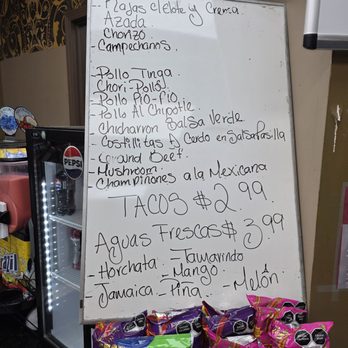 - Rajas C/elote y Crema
Azada
Chorizo
- Campechanos
- Pollo Tinga
- Chori-Pollo
- Pollo Pio-Pio
- Pollo Al Chipotle
- Chicharron Salsa Verde
- Costillitas D Cerdo en Salsa Pasilla
- Ground Beef
- Mushroom
- Champiñones a la Mexicana
TACOS $2.99
Aguas Frescas $3.99
- Horchata - Tamarindo
- Mango
- Jamaica - Piña - Melón
PEPSI